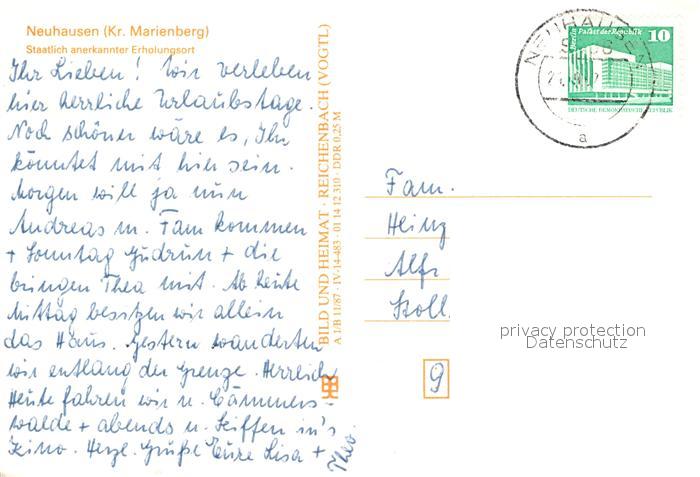 Neuhausen (Kr. Marienberg)
Staatlich anerkannter Erholungsort
Ihr Lieben! Wir verleben
hier herrliche Urlaubstage.
Noch schöner wäre es, Ihr
könntet mit hier sein.
Morgen will ja nun
Andreas m. Fam kommen
+ Sonntag Gudrun + die
bringen Thea mit. Ab heute
Mittag besitzen wir allein
das Haus. Gestern wanderten
wir entlang der Grenze. Herrlich
Heute fahren wir n. Cämmers-
walde + abends n. Seiffen in's
Kino. Herzl. Grüße Eure Lisa +
Theo.
BILD UND HEIMAT · REICHENBACH (VOGTL)
A 1/B 11/87 · IV-14-483 · 01 14 12 310 · DDR 0,25 M
NEUHAUSEN
a
Berlin, Palast der Republik
10
DEUTSCHE DEMOKRATISCHE REPUBLIK
Fam.
Heinz
Alfr
Stoll
9
privacy protection
Datenschutz